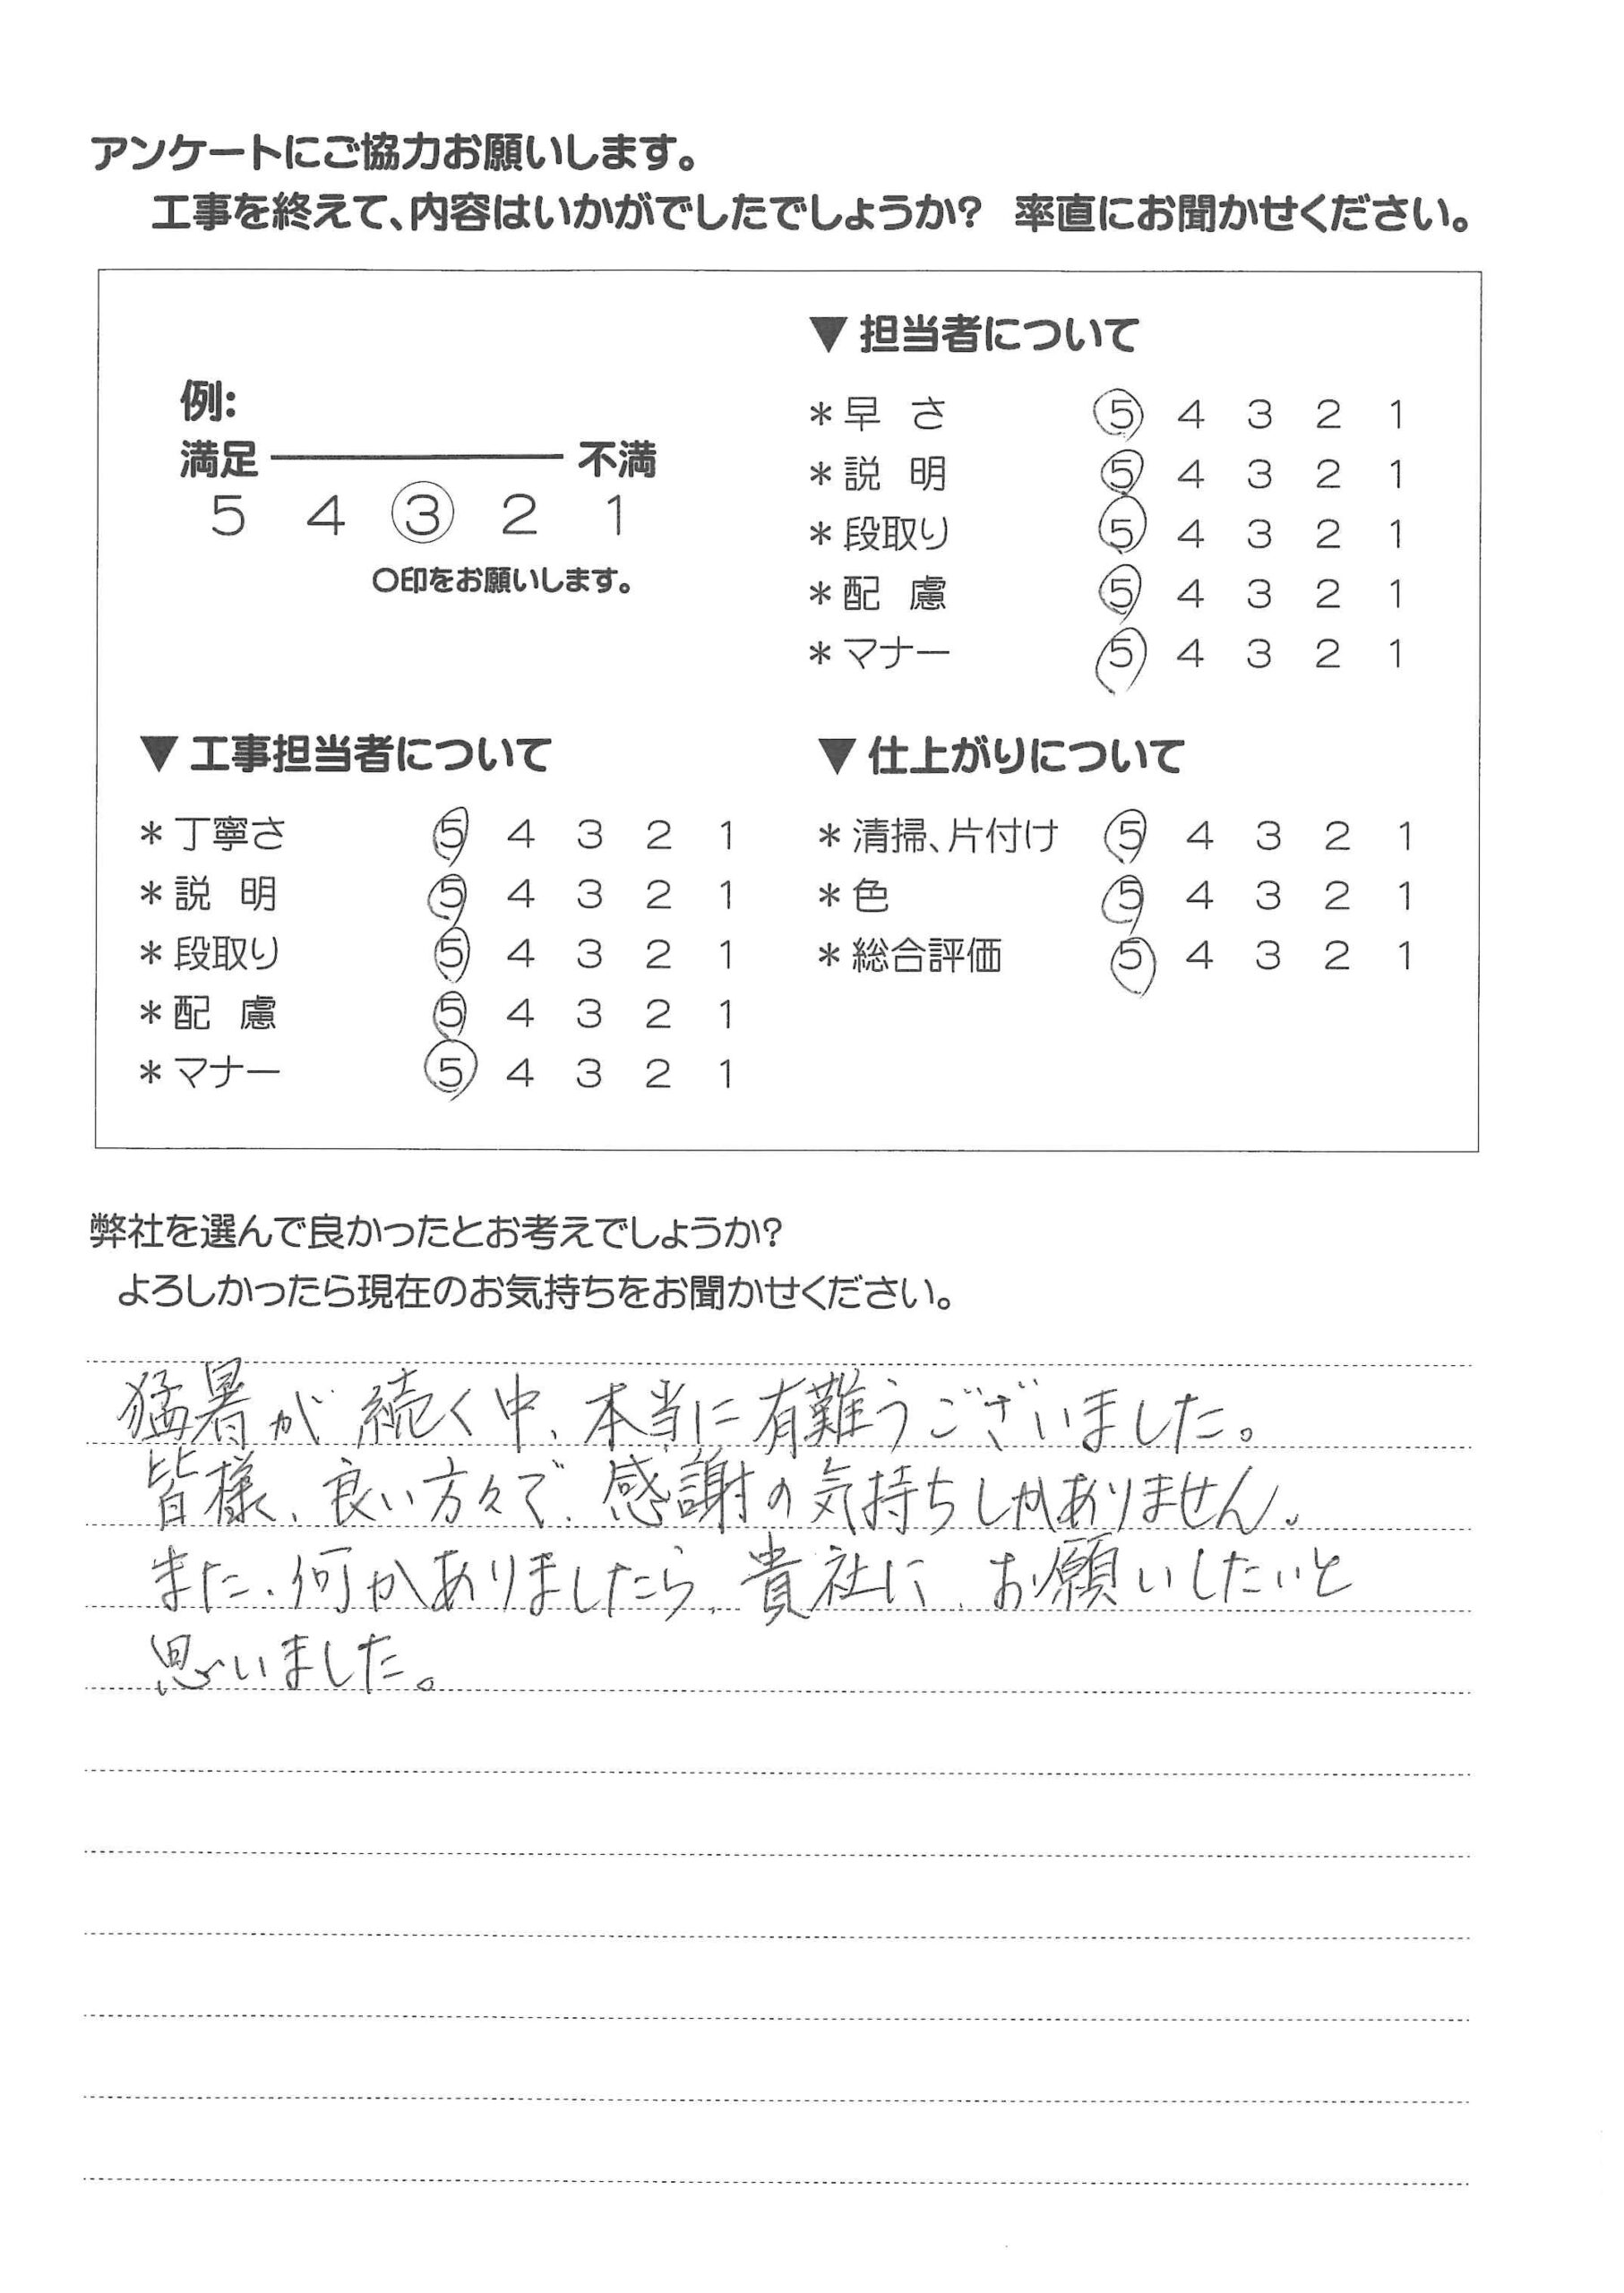 アンケートにご協力お願いします。
工事を終えて、内容はいかがでしたでしょうか? 率直にお聞かせください。
例:
満足 不満
5 4 ③ 2 1
○印をお願いします。
▼ 担当者について
＊早 さ ⑤ 4 3 2 1
＊説 明 ⑤ 4 3 2 1
＊段取り ⑤ 4 3 2 1
＊配 慮 ⑤ 4 3 2 1
＊マナー ⑤ 4 3 2 1
▼ 工事担当者について
＊丁寧さ ⑤ 4 3 2 1
＊説 明 ⑤ 4 3 2 1
＊段取り ⑤ 4 3 2 1
＊配 慮 ⑤ 4 3 2 1
＊マナー ⑤ 4 3 2 1
▼ 仕上がりについて
＊清掃、片付け ⑤ 4 3 2 1
＊色 ⑤ 4 3 2 1
＊総合評価 ⑤ 4 3 2 1
弊社を選んで良かったとお考えでしょうか?
よろしかったら現在のお気持ちをお聞かせください。
猛暑が続く中、本当に有難うございました。
皆様、良い方々で、感謝の気持ちしかありません。
また、何かありましたら、貴社に、お願いしたいと
思いました。